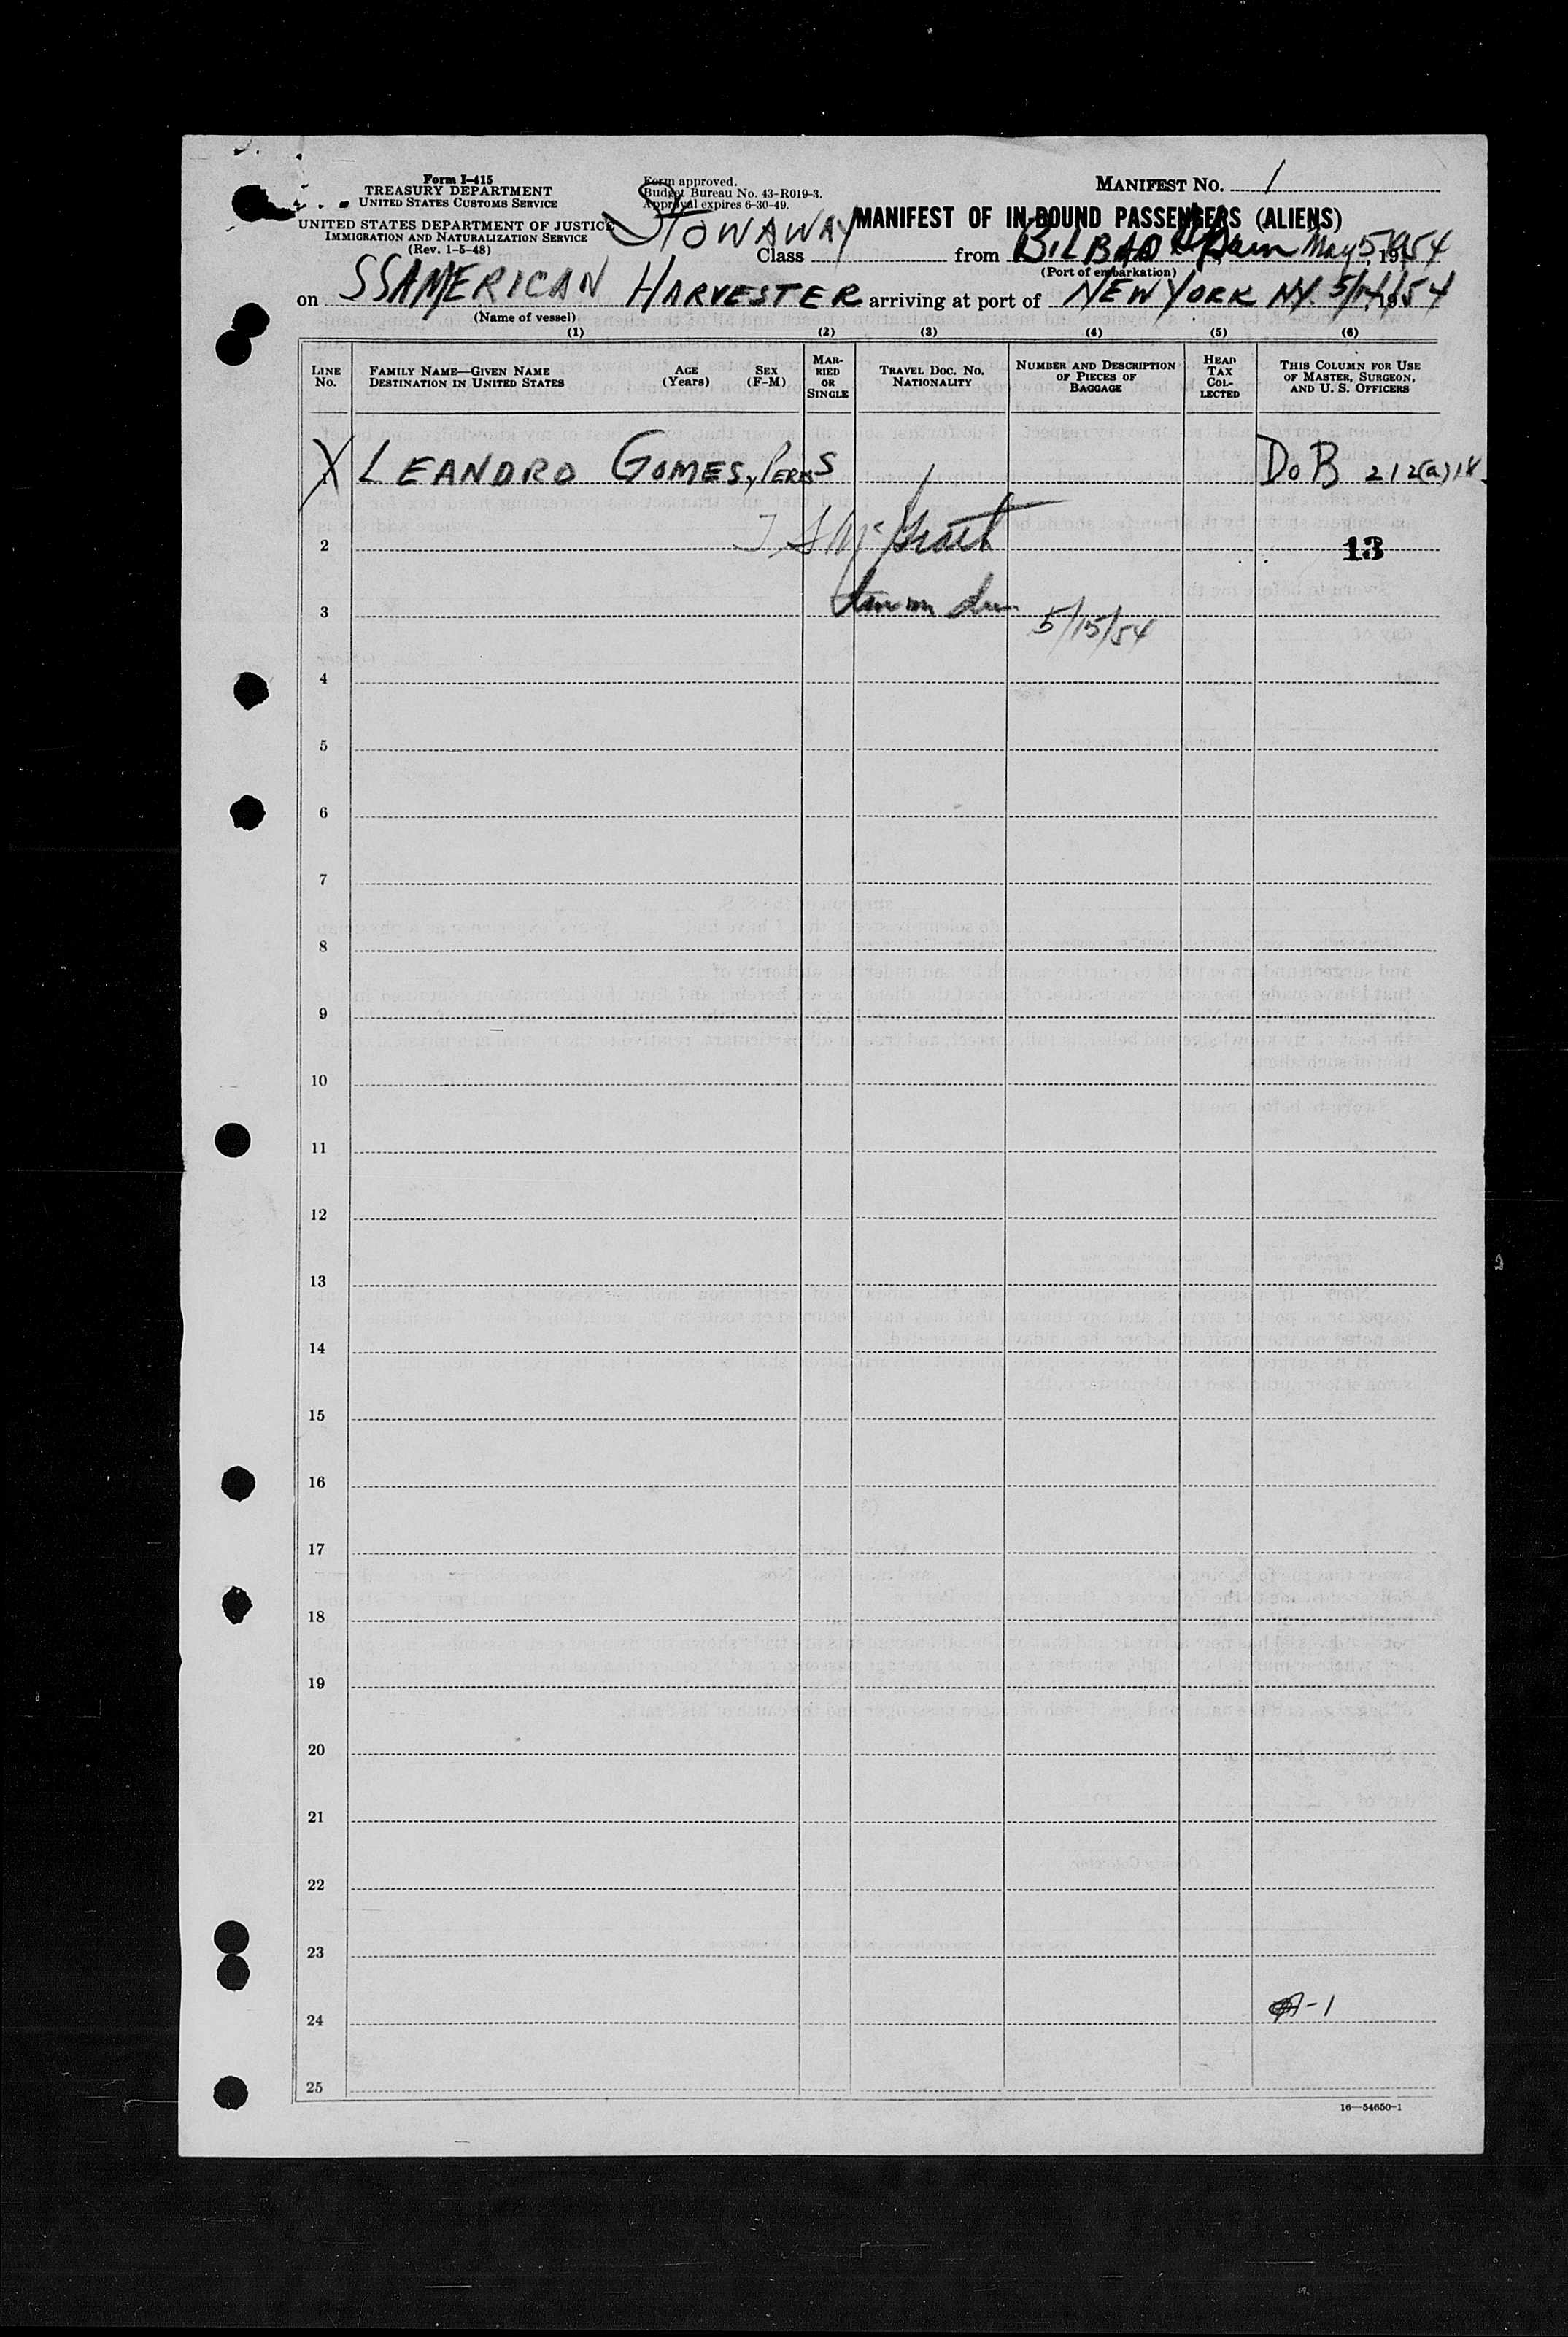 Form I-415
TREASURY DEPARTMENT
UNITED STATES CUSTOMS SERVICE
UNITED STATES DEPARTMENT OF JUSTICE
IMMIGRATION AND NATURALIZATION SERVICE
(Rev. 1-5-48)
Form approved.
Budget Bureau No. 43-R019-3.
Approval expires 6-30-49.
MANIFEST NO. 1
MANIFEST OF IN-BOUND PASSENGERS (ALIENS)
Class STOWAWAY from BILBAO Spain May 5, 1954
(Port of embarkation)
on SS AMERICAN HARVESTER arriving at port of NEW YORK NY 5/14, 1954
(Name of vessel)
(1) (2) (3) (4) (5) (6)
LINE No. FAMILY NAME—GIVEN NAME DESTINATION IN UNITED STATES AGE (Years) SEX (F-M) MARRIED OR SINGLE TRAVEL DOC. NO. NATIONALITY NUMBER AND DESCRIPTION OF PIECES OF BAGGAGE HEAD TAX COLLECTED THIS COLUMN FOR USE OF MASTER, SURGEON, AND U. S. OFFICERS
X LEANDRO GOMES, y PERES S DoB 212(a)18
2 McGrath 13
3 5/15/54
4
5
6
7
8
9
10
11
12
13
14
15
16
17
18
19
20
21
22
23
24 -1
25
16—54650-1